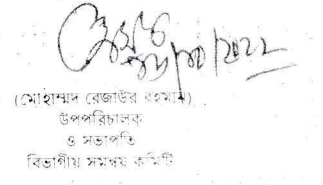 (মোহাম্মদ রেজাউর রহমান)
উপপরিচালক
ও সভাপতি
বিভাগীয় সমন্বয় কমিটি